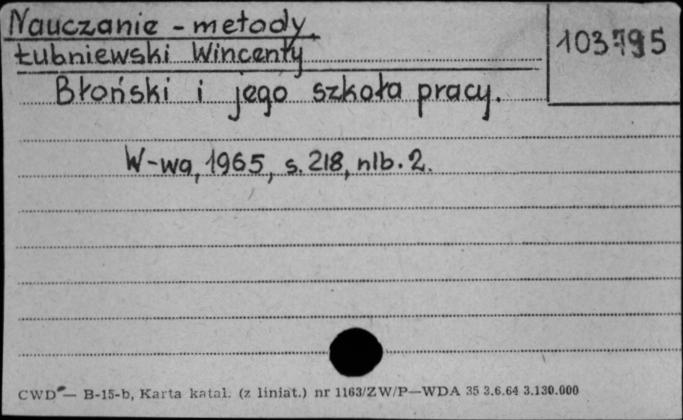 Nauczanie - metody.
103795
Łubniewski Wincenty
Błoński i jego szkoła pracy.
W-wa, 1965, s. 218, nlb. 2.
CWD — B-15-b, Karta katal. (z liniat.) nr 1163/ZW/P—WDA 35 3.6.64 3.130.000